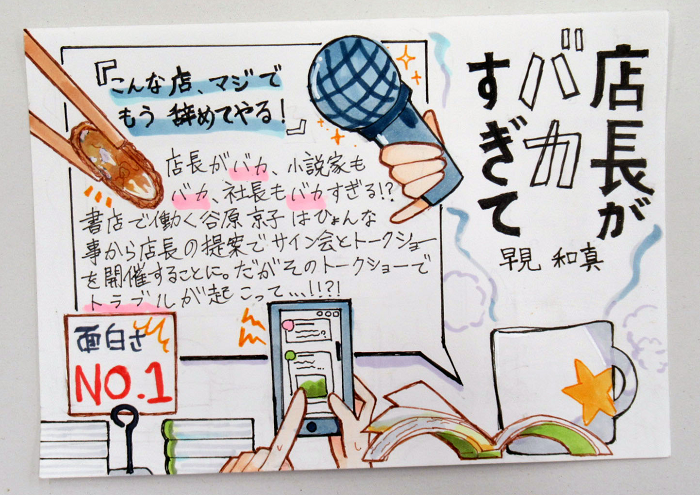 店長が
バカ
すぎて
早見 和真
『こんな店、マジで
もう 辞めてやる!』
店長がバカ、小説家も
バカ、社長もバカすぎる!?
書店で働く谷原京子はひょんな
事から店長の提案でサイン会とトークショー
を開催することに。だがそのトークショーで
トラブルが起こって…!!?!
面白さ
NO.1